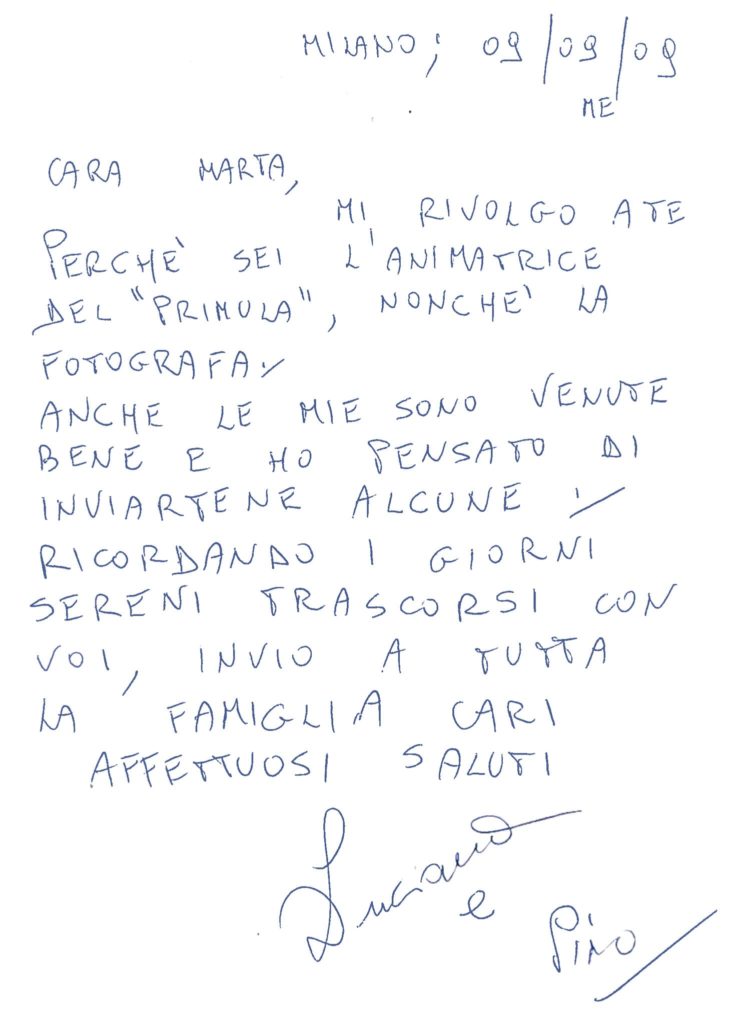 MILANO; 09/09/09
ME
CARA MARTA,
MI RIVOLGO A TE
PERCHÈ SEI L'ANIMATRICE
DEL "PRIMULA", NONCHÈ LA
FOTOGRAFA.
ANCHE LE MIE SONO VENUTE
BENE E HO PENSATO DI
INVIARTENE ALCUNE.
RICORDANDO I GIORNI
SERENI TRASCORSI CON
VOI, INVIO A TUTTA
LA FAMIGLIA CARI
AFFETTUOSI SALUTI
Luciano
e
Pino